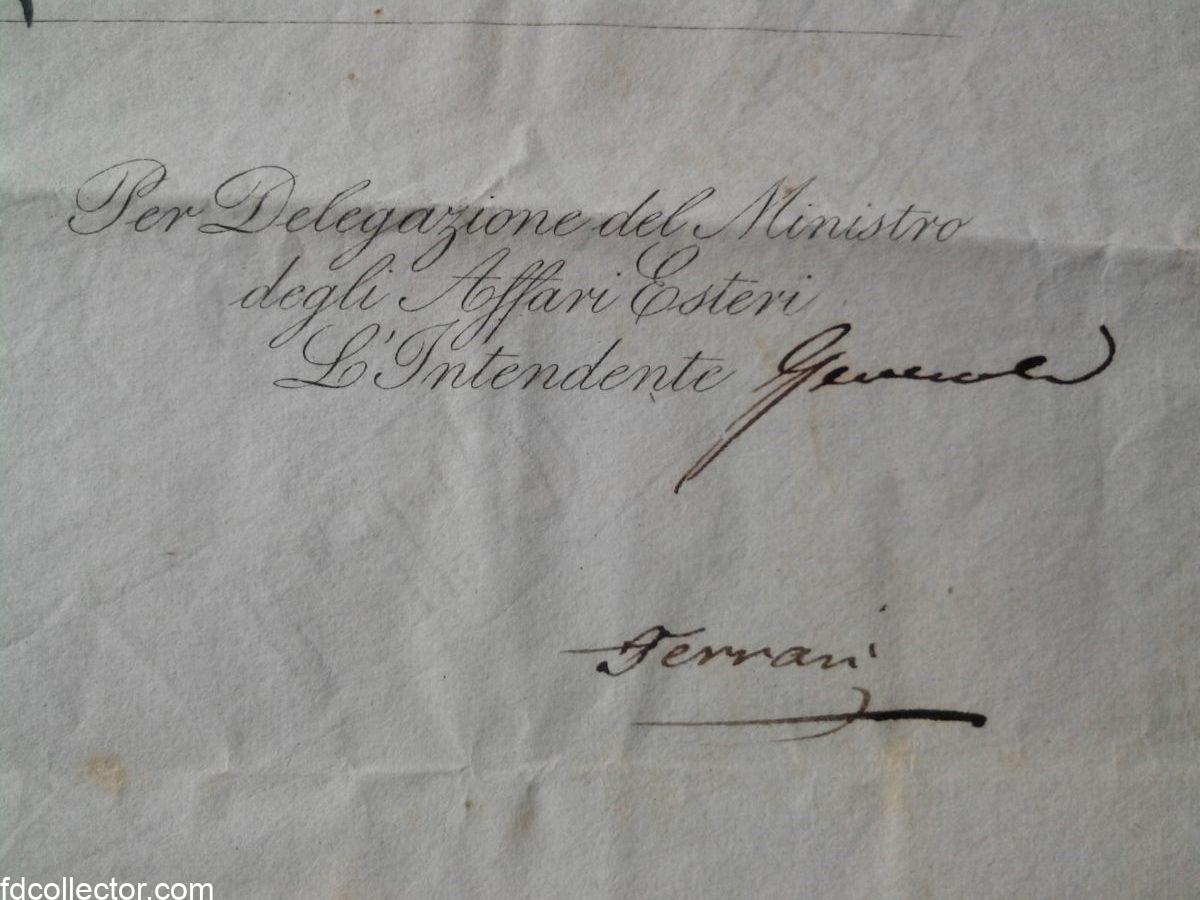 Per Delegazione del Ministro
degli Affari Esteri
L'Intendente Generale
Ferrari
fdcollector.com